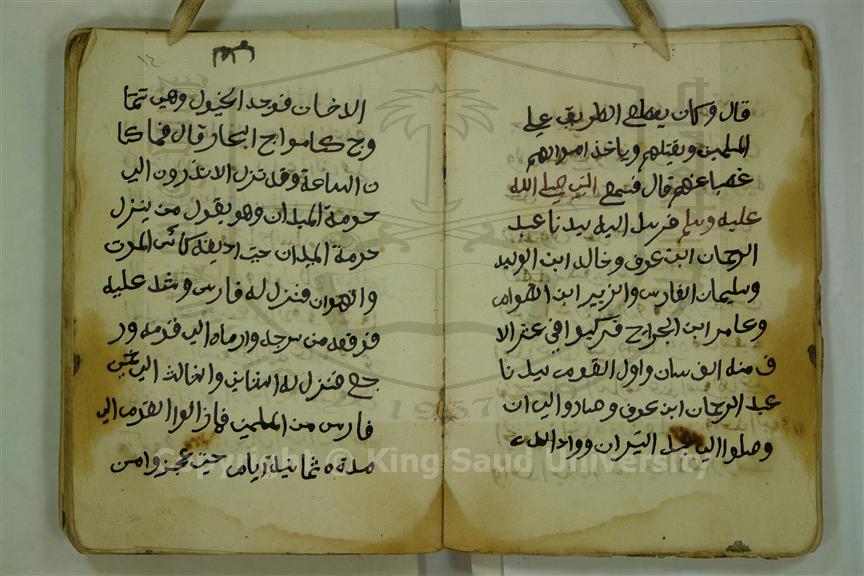 قال وكان يقطع الطريق على
المسلمين ويقتلهم وياخذ اموالهم
غصبا عنهم قال فسمع النبي صلى الله
عليه وسلم فرسل اليه سيدنا عبد
الرحمان ابن عوف وخالد ابن الوليد
وسليمان الفارسي والزبير ابن العوام
وعامر ابن الجراح فركبوا في عشر الا
ف منه الفرسان واول القوم سيدنا
عبد الرحمان ابن عوف وصاروا الى ان
وصلوا الى جبل النيران وواد
الدخان فوجد الخيول وهي تتما
وج كامواج البحار قال فما كا
ن الساعة وقد نزل الا الى
حومة الميدان وهو يقول من ينزل
حومة الميدان حتى اذيقه كائس الموت
والهوان فنزل له فارس وشد عليه
فرفعه من سرجه وارماه الى قومه ور
جع فنزل له الثاني والثالث الى
فارس من المسلمين فمازالوا القوم الى
مدة ثمانية ايام حتى عجزوا من
Copyright © King Saud University
1957